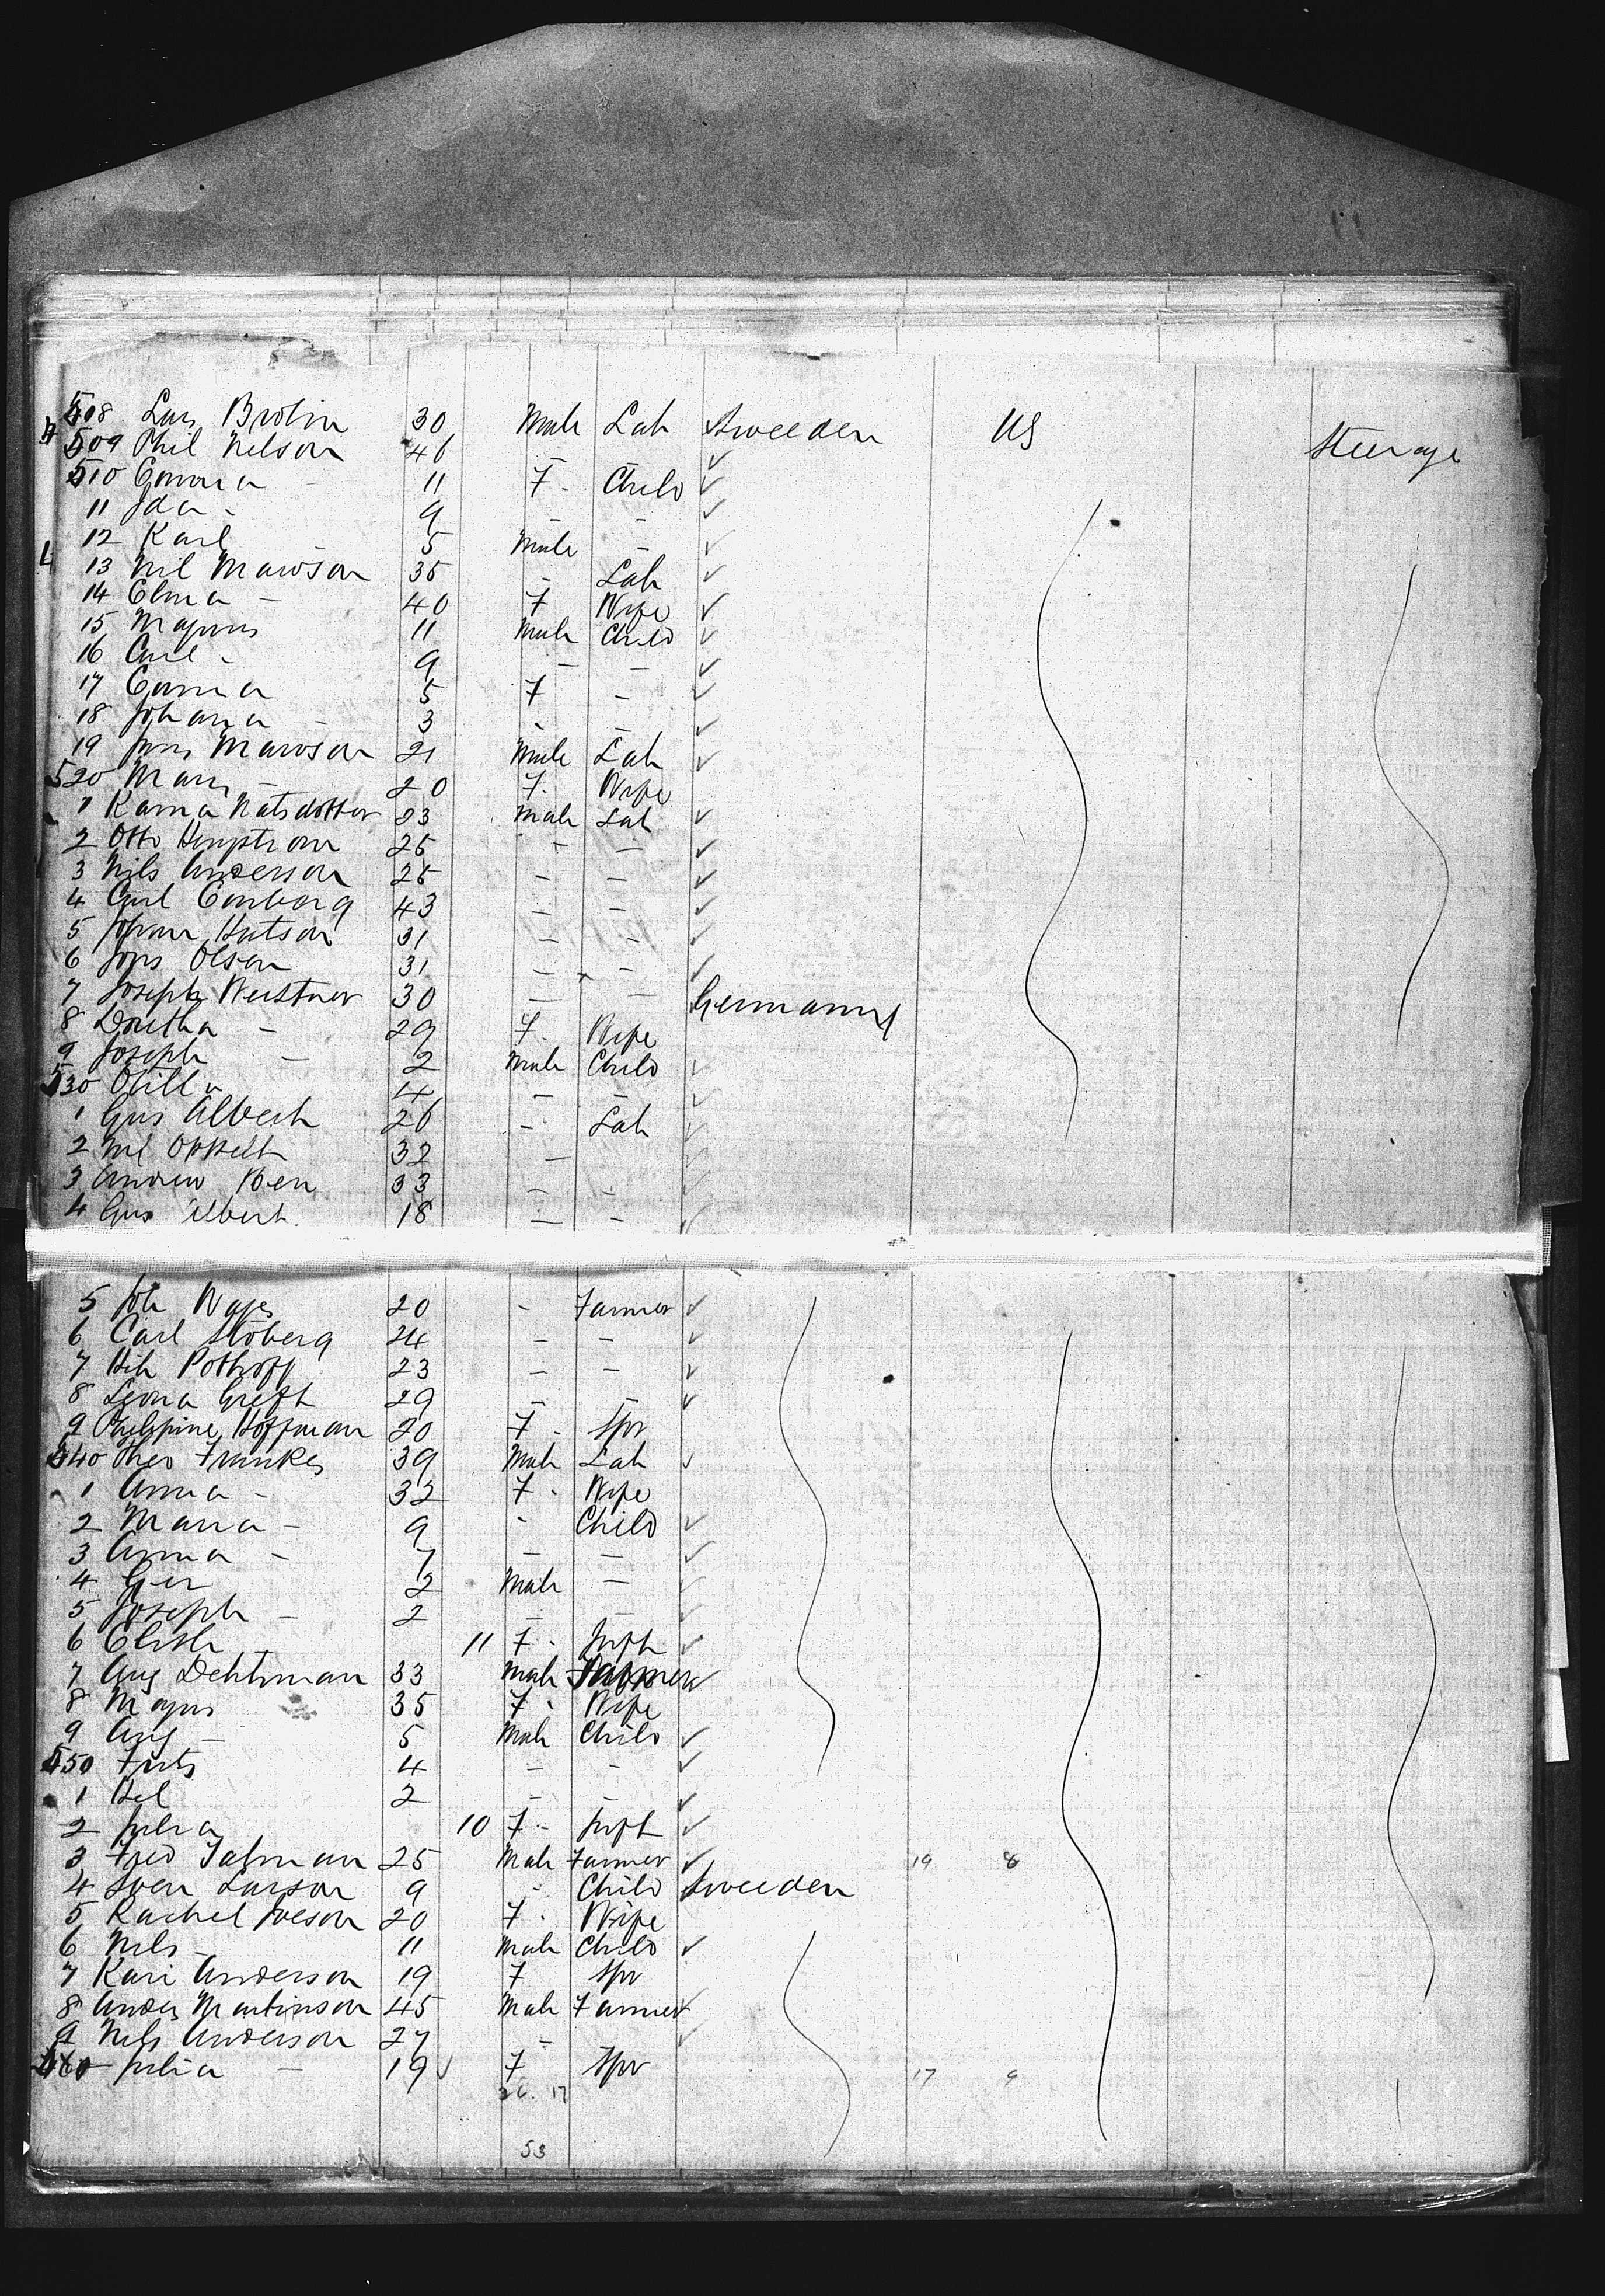 508 Lars Brolin 30 Male Lab Sweeden US Steerage
509 Phil Nelson 46 - - ✓
510 Emma - 11 F. Child ✓
11 Ida - 9 - - ✓
12 Karl 5 Male - ✓
13 Nil Mawson 35 - Lab ✓
14 Elma - 40 F Wife ✓
15 Magnus 11 Male Child ✓
16 Carl - 9 - - ✓
17 Emma 5 F - ✓
18 Johana - 3 - - ✓
19 Jons Mawson 21 Male Lab ✓
520 Mary - 20 F. Wife
1 Karna Natsdotter 23 Male Lab ✓
2 Otto 25 - - ✓
3 Nils Anderson 25 - - ✓
4 Carl Enborg 43 - - ✓
5 Johan Hutson 31 - - ✓
6 Jons Olson 31 - - ✓
7 Joseph Weistner 30 - - Germany
8 Doretha - 29 F. Wife
9 Joseph - 2 Male Child ✓
530 Otilla 4 - - ✓
1 Gus Albert 26 - Lab ✓
2 32 - ✓
3 Andrew Ben 33 - - ✓
4 Gus Albert 18 - - ✓
5 Joh 20 - Farmer ✓
6 Carl Stoberg 24 - - ✓
7 Hih Pothoff 23 - - ✓
8 Leona 29 - - ✓
9 Philipine Hoffman 20 F - Spr
540 Theo Frankes 39 Male Lab ✓
1 Anna - 32 F. Wife
2 Maria - 9 - Child ✓
3 Anna - 7 - - ✓
4 Ger 2 Male - ✓
5 Joseph - 2 - - ✓
6 Elish 11 F - Inft ✓
7 Aug Dehtman 33 Male Farmer ✓
8 35 F. Wife
9 Aug - 5 Male Child ✓
550 Frits 4 - - ✓
1 Hel 2 - - ✓
2 Julia 10 F - Inft ✓
3 Fred Tatman 25 Male Farmer ✓ 19 8
4 Sven Larson 9 - Child Sweeden
5 Rachel 20 F. Wife
6 Nils - 11 Male Child ✓
7 Kari Anderson 19 F Spr
8 Andes Martinson 45 Male Farmer ✓
9 Nils Anderson 27 - ✓
560 Julia - 19 F Spr 17 9
36. 17
53